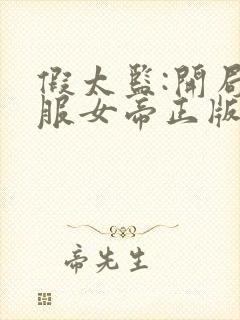 假太监:開局
服女帝正版
帝先生